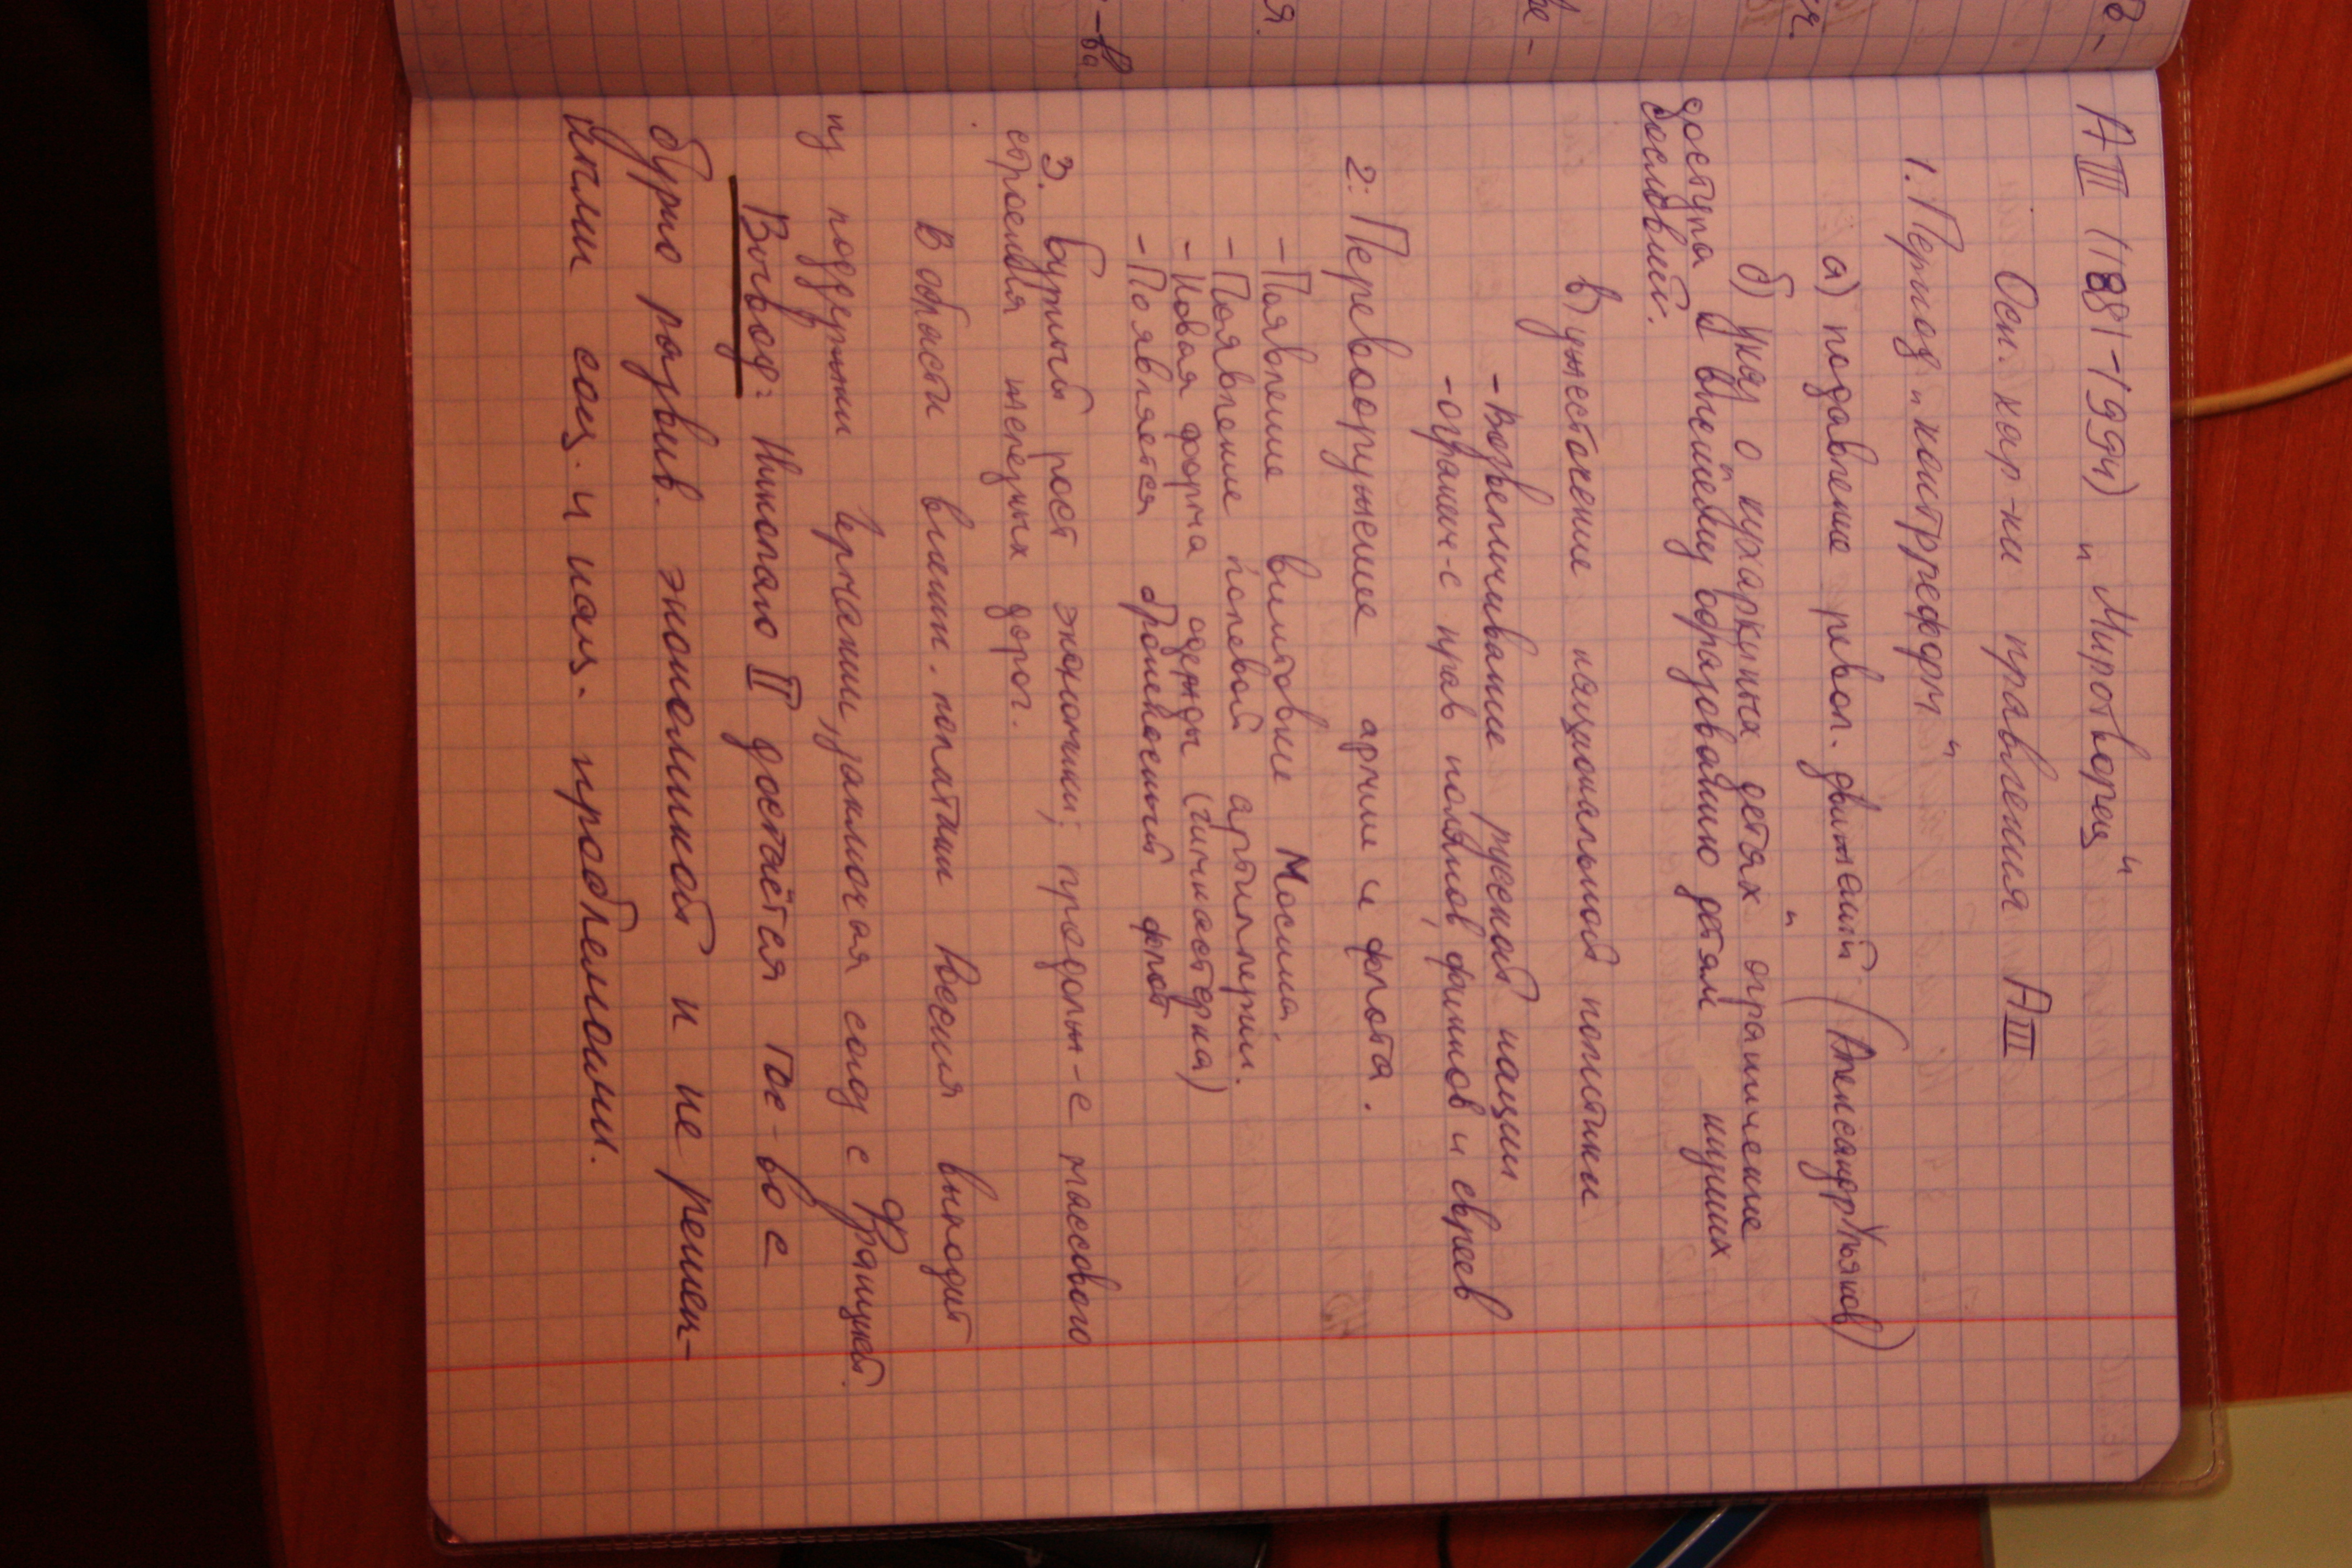 АIII (1881-1994) „Миротворец"
Осн. хар-ки правления АIII
1. Период „контрреформ"
а) подавление револ. движений (Александр Ульянов)
б) указ о „кухаркиных детях" ограничение
доступа к высшему образованию детям низших
сословий.
в) ужесточение национальной политики
- Возвеличивание русской нации
- огранич-е прав поляков, финнов и евреев
2. Перевооружение армии и флота.
- Появление винтовке Мосина.
- Появление полевой артиллерии.
- Новая форма одежды (гимнастерка)
- Появляется броненосный флот
3. Бурный рост экономики; продолж-е массового
строения железных дорог.
В области внешн. политики Россия выходит
из поддержки Германии, заключая союз с Францией.
Вывод: Николаю II достаётся гос-во с
бурно развив. экономикой и не решен-
ными соц. и нац. проблемами.
-ва
я.